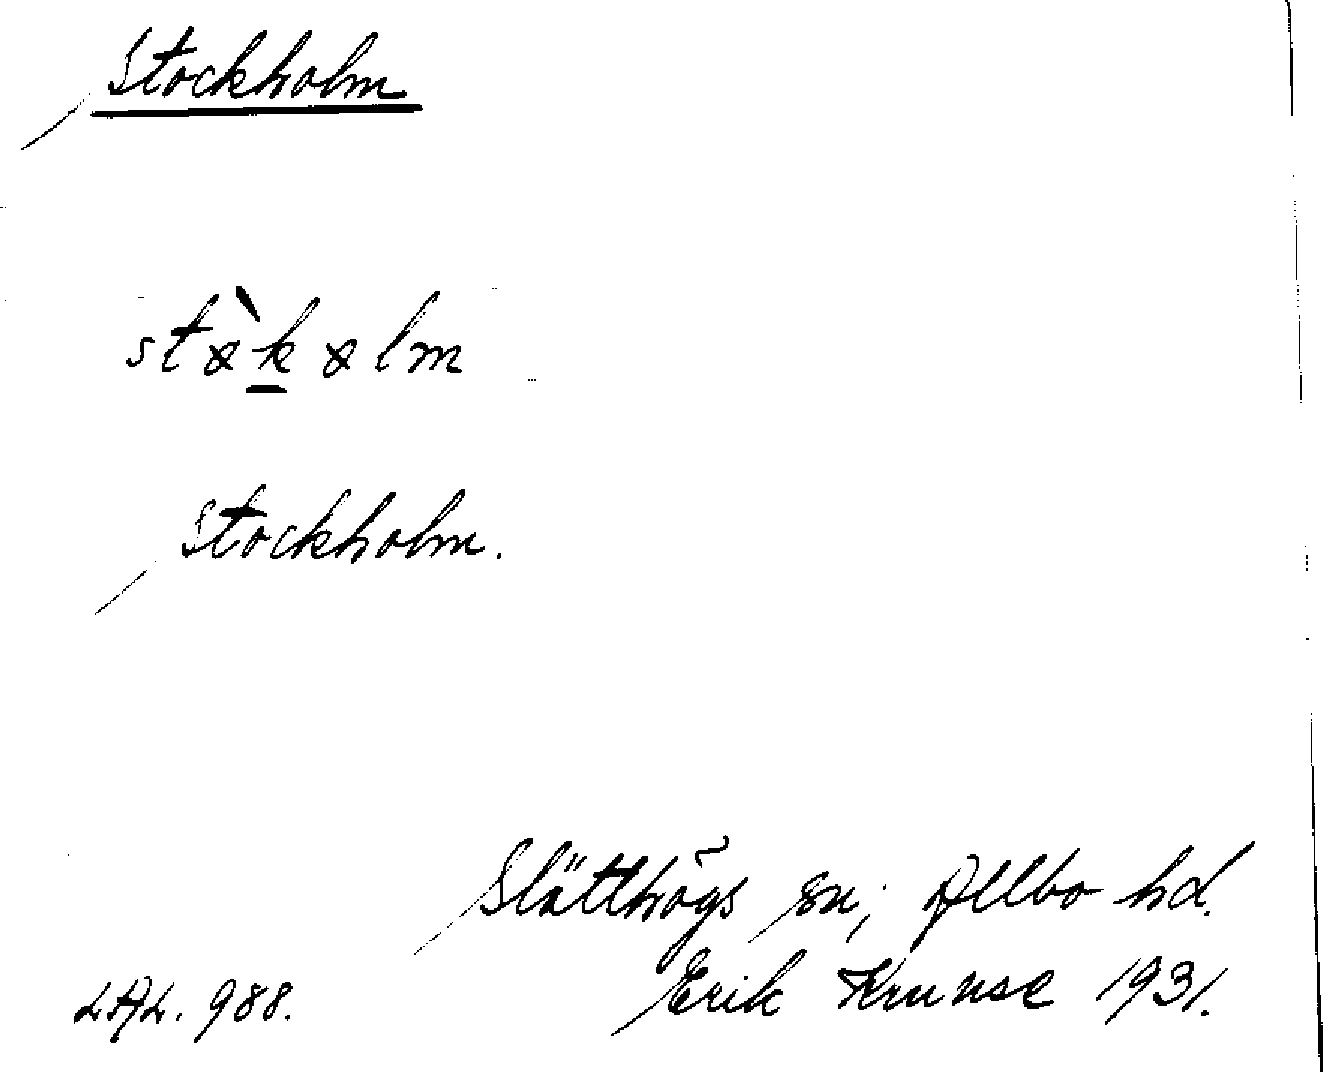 Stockholm
stɤ̀k̲ɤlm
Stockholm.
Slätthögs sn; Allbo hd.
Erik Krunse 1931.
LAL. 988.